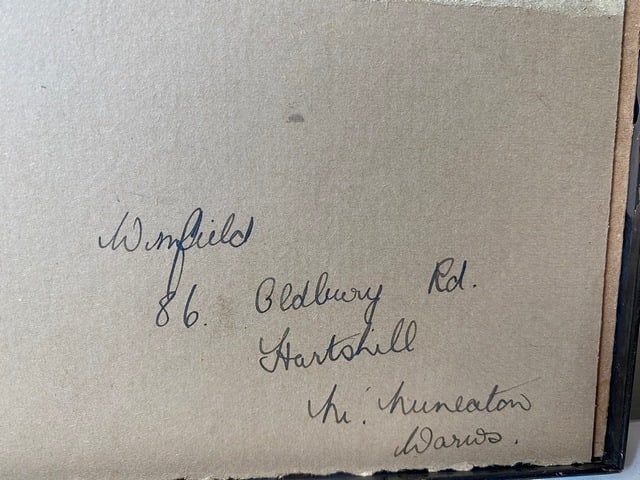 Winfield
86. Oldbury Rd.
Hartshill
Nr. Nuneaton
Warws.